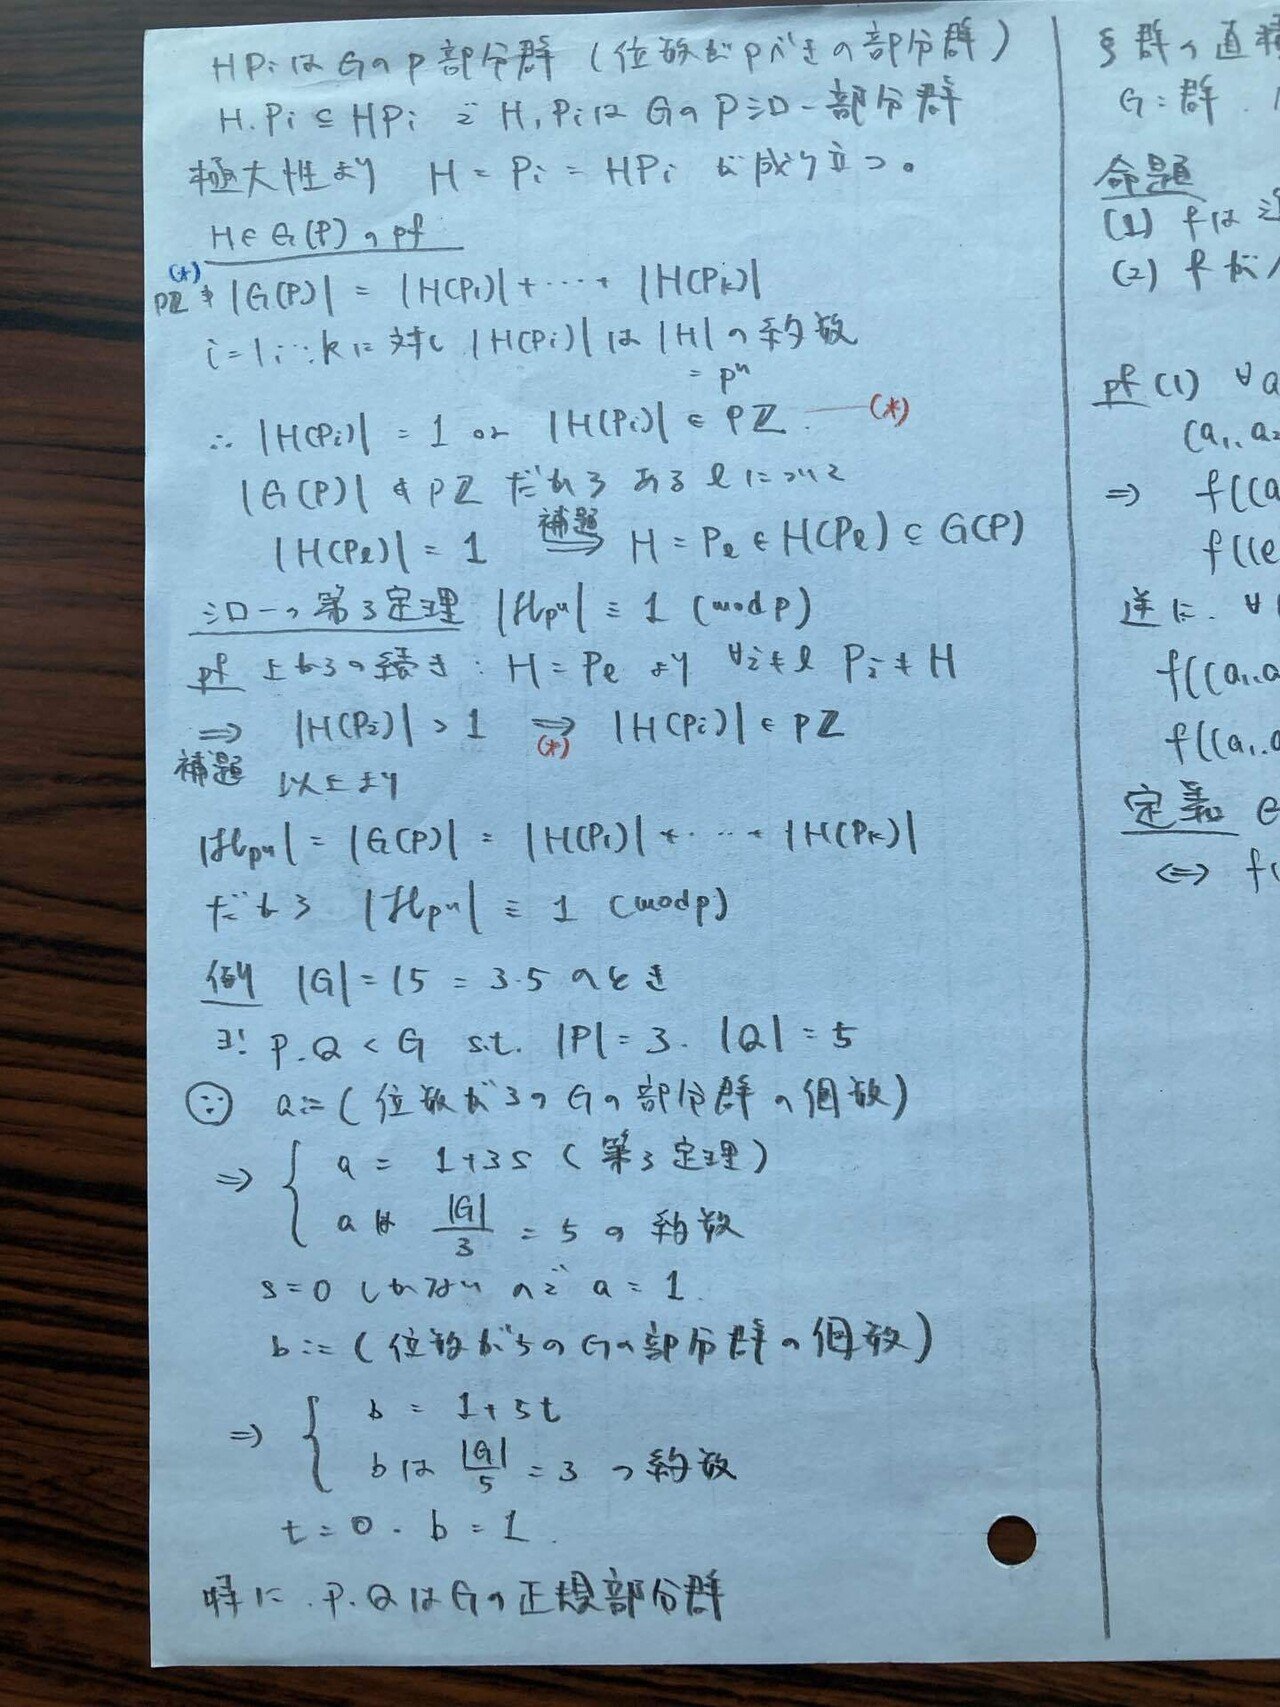 HPiはGのp部分群 (位数がpべきの部分群)
H, Pi ⊆ HPi で H, PiはGのpシロー部分群
極大性より H = Pi = HPi が成り立つ。
H∈G(P)のpf
(*)
pZ ∌ |G(P)| = |H(P1)| + ⋯ + |H(Pk)|
i=1,…,kに対し |H(Pi)|は|H|の約数
= pⁿ
∴ |H(Pi)| = 1 or |H(Pi)| ∈ pZ. ―(*)
|G(P)| ∉ pZ だから あるlについて
|H(Pl)| = 1 補題⟹ H = Pl ∈ H(Pl) ⊆ G(P)
シローの第3定理 |ℋpⁿ| ≡ 1 (mod p)
pf 上からの続き: H = Pl より ∀i≠l Pi ≠ H
⟹ |H(Pi)| > 1 ⟹ |H(Pi)| ∈ pZ
補題 (*)
以上より
|ℋpⁿ| = |G(P)| = |H(P1)| + ⋯ + |H(Pk)|
だから |ℋpⁿ| ≡ 1 (mod p)
例 |G| = 15 = 3·5 のとき
∃! P, Q < G s.t. |P| = 3, |Q| = 5
∵ a := (位数が3のGの部分群の個数)
⇒ { a = 1+3s (第3定理)
aは |G|/3 = 5 の約数
s=0 しかないので a = 1.
b := (位数が5のGの部分群の個数)
⇒ { b = 1+5t
bは |G|/5 = 3 の約数
t = 0, b = 1.
特に, P, QはGの正規部分群
§群の直積
G: 群.
命題
(1) fは
(2) fが
pf (1) ∀a
(a1, a2
⇒ f((a
f((e
逆に, ∀
f((a1, a
f((a1, a
定義
⇔ f(